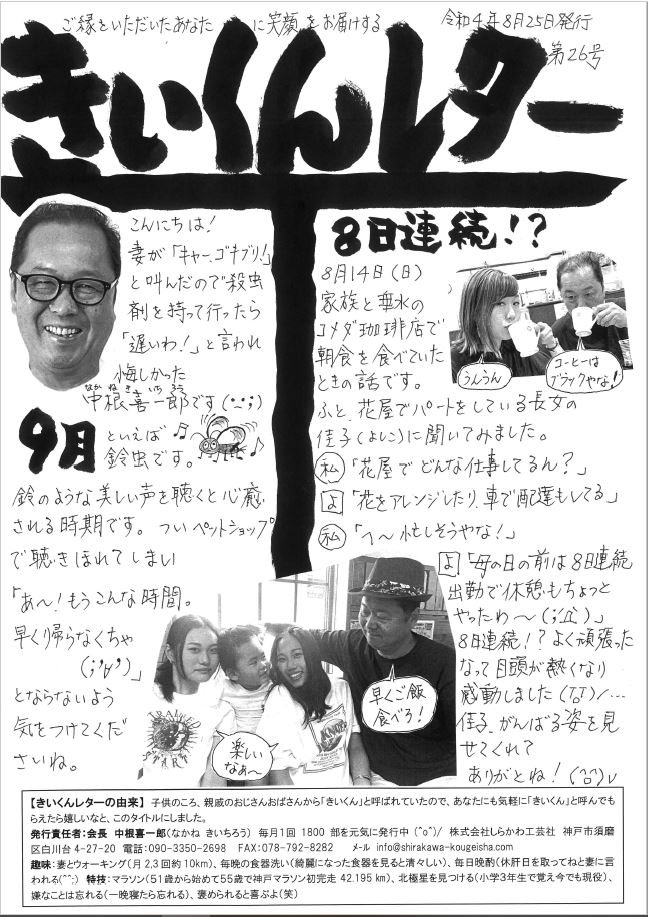 ご縁をいただいたあなたに笑顔をお届けする
令和4年8月25日発行
第26号
きいくんレター
こんにちは!
妻が「キャー、ゴキブリ!」
と叫んだので殺虫
剤を持って行ったら
「遅いわ!」と言われ
悔しかった
なかねきいちろう
中根喜一郎です(・_・;)
9月
といえば
鈴虫です。
鈴のような美しい声を聴くと心癒
される時期です。ついペットショップ
で聴きほれてしまい
「あ〜!もうこんな時間。
早くり帰らなくちゃ
(;'∀')」
とならないよう
気をつけてくだ
さいね。
8日連続!?
8月14日(日)
家族と垂水の
コメダ珈琲店で
朝食を食べていた
ときの話です。
うんうん
コーヒーは
ブラックやな!
ふと、花屋でパートをしている長女の
佳子(よしこ)に聞いてみました。
私「花屋でどんな仕事してるん?」
よ「花をアレンジしたり、車で配達もしてる」
私「へ〜忙しそうやな!」
よ「母の日の前は8日連続
出勤で休憩もちょっと
やったわ〜(;´Д`)」
8日連続!?よく頑張った
なって目頭が熱くなり
感動しました(T_T)/…
佳子、がんばる姿を見
せてくれて
ありがとね!(^□^)v
早くご飯
食べろ!
楽しい
なぁ〜
【きいくんレターの由来】 子供のころ、親戚のおじさんおばさんから「きいくん」と呼ばれていたので、あなたにも気軽に「きいくん」と呼んでも
らえたら嬉しいなと、このタイトルにしました。
発行責任者:会長 中根喜一郎(なかね きいちろう) 毎月1回 1800 部を元気に発行中 (^o^)/ 株式会社しらかわ工芸社 神戸市須磨
区白川台 4-27-20 電話:090-3350-2698 FAX:078-792-8282 メール info@shirakawa-kougeisha.com
趣味:妻とウオーキング(月 2,3 回約 10km)、毎晩の食器洗い(綺麗になった食器を見ると清々しい)、毎日晩酌(休肝日を取ってねと妻に言
われる(^^;) 特技:マラソン(51歳から始めて55歳で神戸マラソン初完走 42.195 km)、北極星を見つける(小学3年生で覚え今でも現役)、
嫌なことは忘れる(一晩寝たら忘れる)、褒められると喜ぶよ(笑)